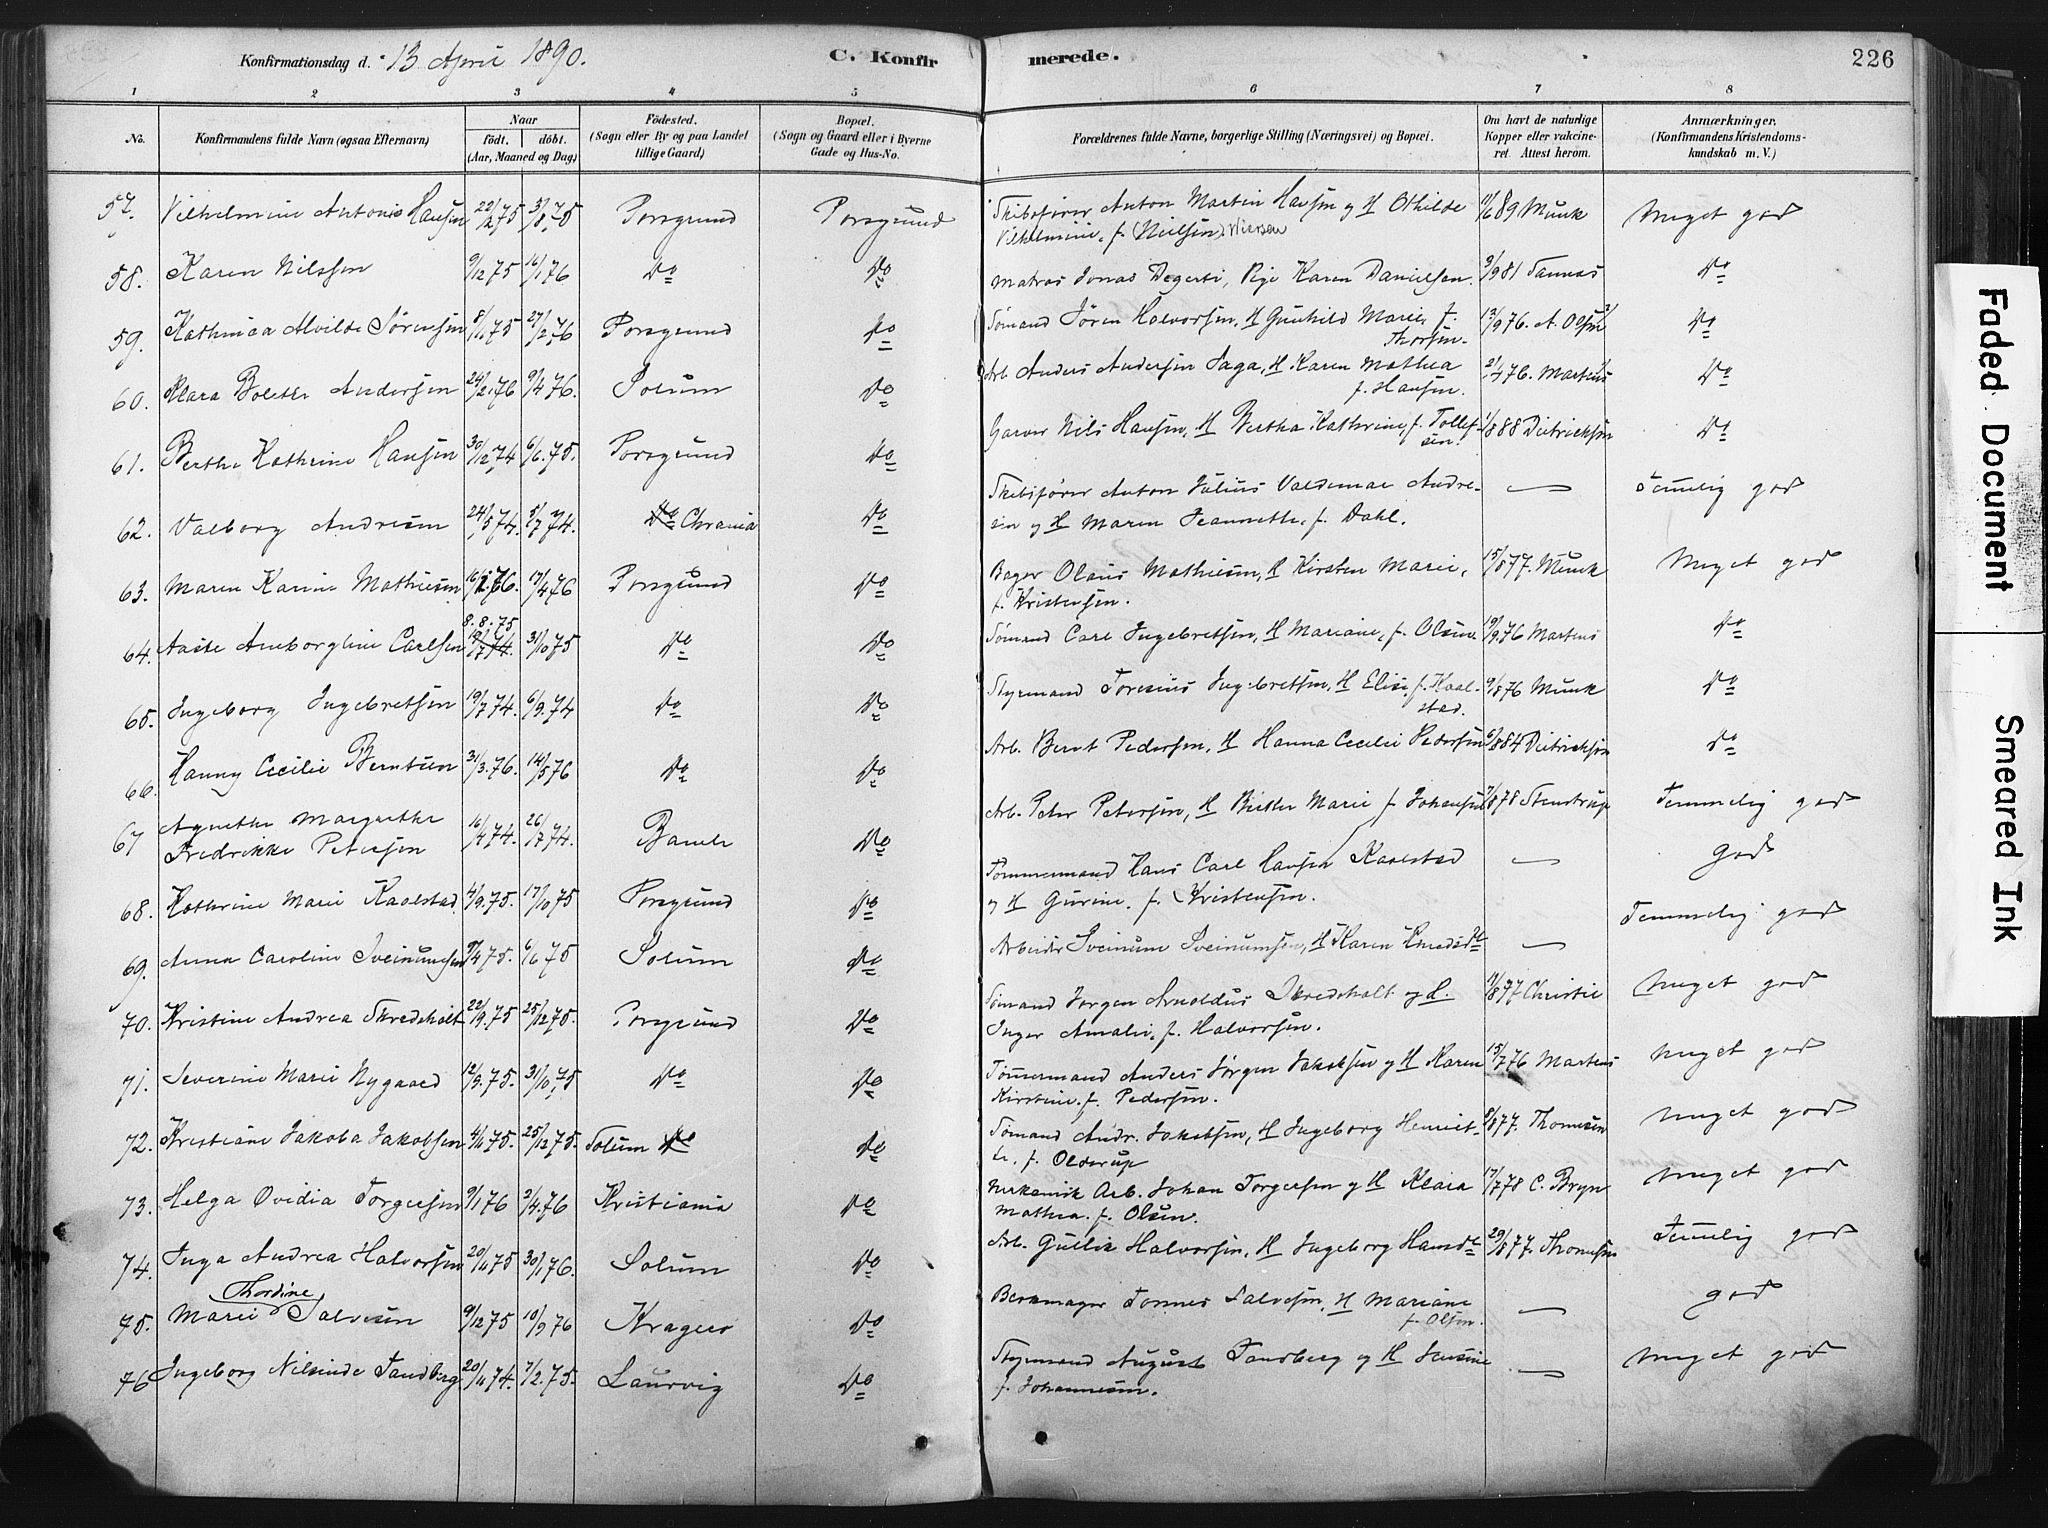 Konfirmationsdag d. 13 April 1890.
C. Konfirmerede.
226
1 2 3 4 5 6 7 8
No.
Konfirmandens fulde Navn (ogsaa Efternavn)
Naar
født. døbt.
(Aar, Maaned og Dag)
Fødested.
(Sogn eller By og paa Landet
tillige Gaard)
Bopæl.
(Sogn og Gaard eller i Byerne
Gade og Hus-No.
Forældrenes fulde Navne, borgerlige Stilling (Næringsvei) og Bopæl.
Om havt de naturlige
Kopper eller vakcine-
ret. Attest herom.
Anmærkninger.
(Konfirmandens Kristendoms-
kundskab m. V.)
57. Vilhelmine Antonie Hansen 22/2 75 3/8 75 Porsgrund Porsgrund Skibsfører Anton Martin Hansen og H Othilde 11/6 89 Munk Meget god
Vilhelmine, f. (Nielsen)
58. Karen Nilssen 9/12 75 16/1 76 Do Do Matros Jonas Degerti, Pige Karen Danielsen. 3/9 81 Do
59. Kathinca Alvilde Sørensen 8/11 75 27/2 76 Porsgrund Do Sømand Søren Halvorsen, H Gunhild Marie, f. 12/9 76. A. Olsen Do
Thorsen.
60. Klara Bolette Andersen 24/2 76 9/4 76. Solum Do Arb. Anders Andersen Saga, H. Karen Mathea 76. Martens Do
f. Hansen.
61. Berthe Kathrine Hansen 30/12 74 6/6. 75. Porsgrund Do Garver Nils Hansen, H Bertha Kathrine, f. Tollef- 1/8 88 Dietrichsen Do
sen.
62. Valborg Andresen 24/5 74. 5/7 74. Do Chrania Do Skibsfører Anton Julius Valdemar Andre- — Temmelig god
sen og H Maren Jeannette, f. Dahl.
63. Maren Karine Mathiesen 16/1 76. 17/4 76 Porsgrund Do Bager Olaus Mathiesen, H Kirsten Marie, 15/8 77. Munk Meget god
f. Kristensen.
8.8.75
64. Aaste Amborgline Carlsen 19/7 74. 31/10 75 Do Do Sømand Carl Ingebretsen, H Mariane, f. Olsen 19/9 76 Martens Do
65. Ingeborg Ingebretsen 19/7 74. 6/9. 74 Do Do Styrmand Toresius Ingebretsen, H Elise, f. Kaal- 9/8 76 Munk Do
stad.
66. Hanny Cecilie Berntsen 31/3. 76. 14/5 76 Do Do Arb. Bernt Pedersen, H Hanna Cecilie Pedersen 6/8 84 Dietrichsen Do
67 Agnethe Margrethe 16/4 74. 26/7 74. Bamle Do Arb. Peter Petersen, H Birthe Marie f. Johansen 7/8 78 Stenstrup Temmelig god
Fredrikke Petersen
68. Kathrine Marie Kaalstad 4/9. 75. 17/10 75 Porsgrund Do Tømmermand Hans Carl Hansen Kaalstad — God
og H Gurine. f. Kristensen.
69. Anna Caroline Sveinumsen 9/4 75. 6/6 75 Solum Do Arbeider Sveinume Sveinumsen, H Karen Knudsdt — Temmelig god
70. Kristine Andrea Skredsholt 22/9. 75 25/12 75. Porsgrund Do Sømand Jørgen Arnoldus Skredsholt og H. 11/8 77 Christie Meget god
Inger Amalie, f. Halvorsen.
71. Severine Marie Nygaard 12/9. 75. 31/10, 75 Do Do Tømmermand Anders Jørgen Jakobsen og H Karen 15/7 76 Martens Meget god
Kirstine. f. Pedersen.
72. Kristiane Jakoba Jakobsen 4/11 75. 25/12 75. Solum Do Do Sømand Andr. Jakobsen, H Ingeborg Henriet- 8/8 77. Thomesen Meget god
te, f. Olderup
73. Helga Ovidia Torgersen 9/1 76 2/4. 76 Kristiania Do Mekanisk Arb. Johan Torgersen og H Klara 17/7 78 C. Bryn Meget god
Mathea. f. Olsen.
74. Inga Andrea Halvorsen 20/11 75 30/1 76. Solum Do Arb. Gullik Halvorsen, H Ingeborg Hansdt 20/8 77. Thomesen Temmelig god
Thordine
75. Marie Salvesen 9/12 75 10/9 76 Kragerø Do Bernmager Tønnes Salvesen, H Mariane — god
f. Olsen.
76 Ingeborg Nilsinde Sandberg 20/11 74. 7/2. 75. Laurvig Do Styrmand August Sandberg og H Jensine — Meget god
f. Johannesen.
Faded Document
Smeared Ink